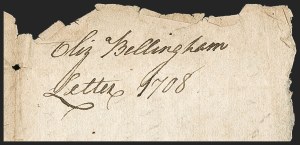 Eliz:a Bellingham
Letter 1708